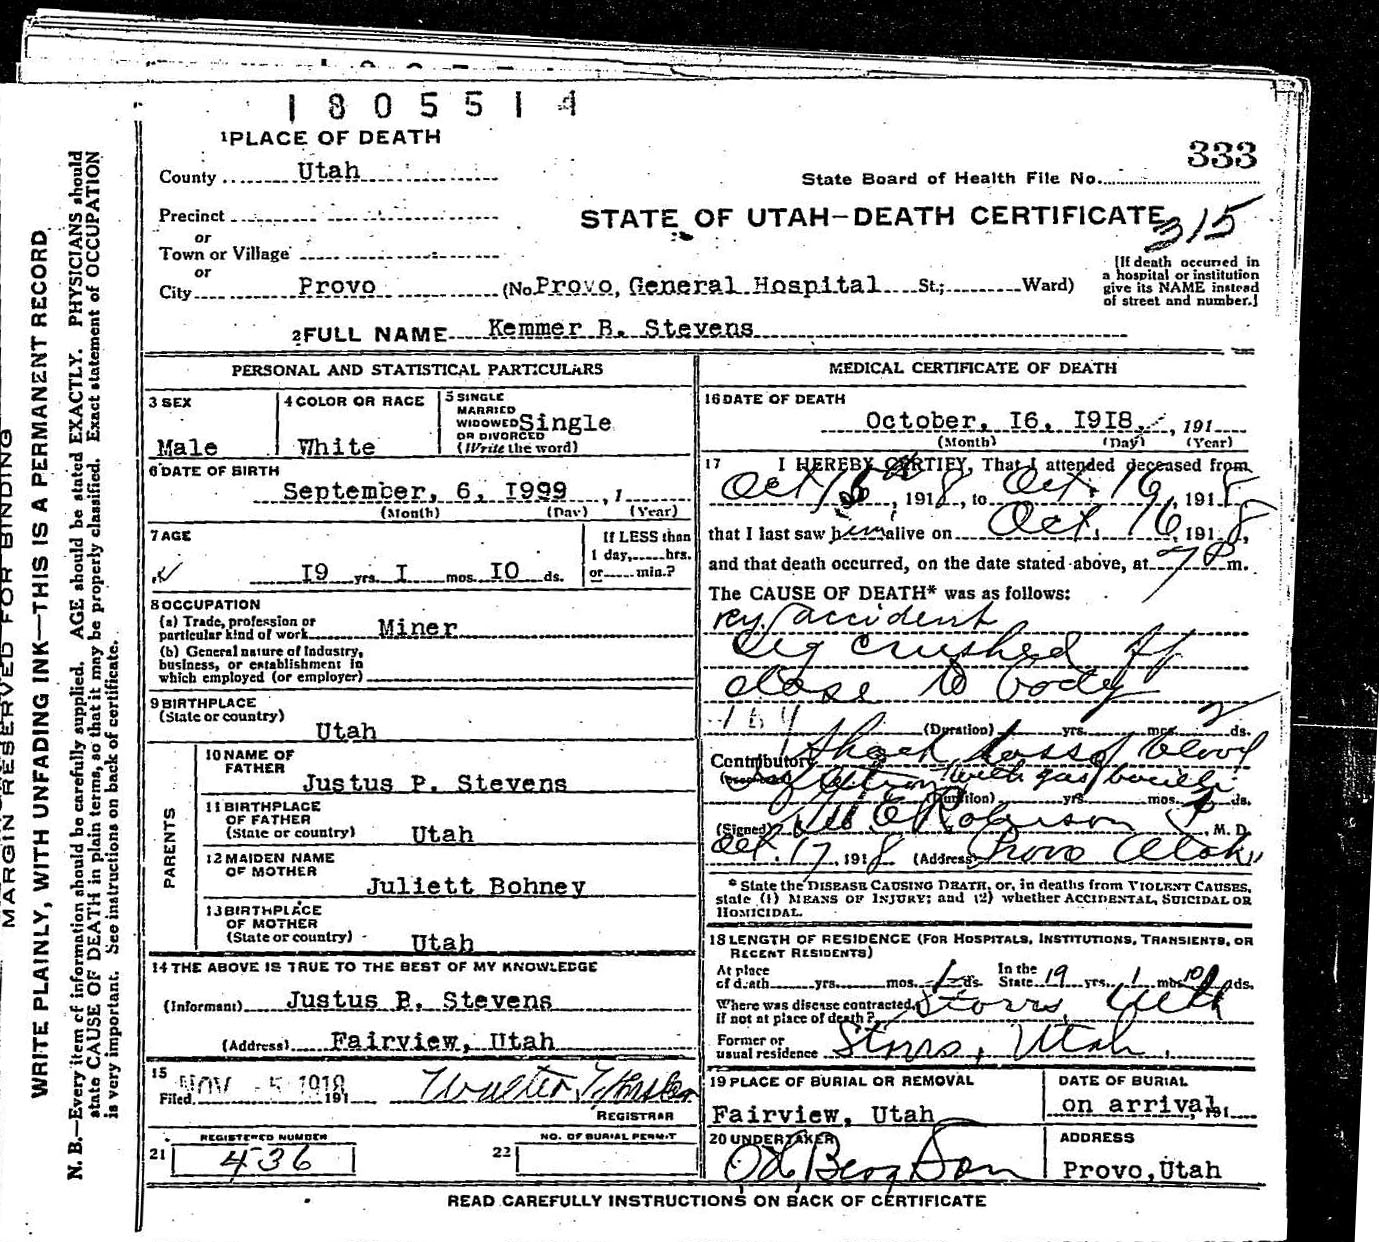 1805514
1PLACE OF DEATH
333
County Utah
State Board of Health File No.
Precinct
STATE OF UTAH—DEATH CERTIFICATE
315
or
Town or Village
or
City Provo (No. Provo, General Hospital St.; Ward)
[If death occurred in
a hospital or institution
give its NAME instead
of street and number.]
2FULL NAME Kemmer B. Stevens
PERSONAL AND STATISTICAL PARTICULARS
3 SEX
Male
4 COLOR OR RACE
White
5 SINGLE
MARRIED
WIDOWED Single
OR DIVORCED
(Write the word)
6 DATE OF BIRTH
September, 6, I999 , 1
(Month) (Day) (Year)
7 AGE
I9 yrs. I mos. IO ds.
If LESS than
1 day, hrs.
or min.?
8 OCCUPATION
(a) Trade, profession or
particular kind of work Miner
(b) General nature of Industry,
business, or establishment in
which employed (or employer)
9 BIRTHPLACE
(State or country)
Utah
PARENTS
10 NAME OF
FATHER
Justus P. Stevens
11 BIRTHPLACE
OF FATHER
(State or country) Utah
12 MAIDEN NAME
OF MOTHER
Juliett Bohney
13 BIRTHPLACE
OF MOTHER
(State or country) Utah
14 THE ABOVE IS TRUE TO THE BEST OF MY KNOWLEDGE
(Informant) Justus P. Stevens
(Address) Fairview, Utah
15
Filed NOV - 5 1918 191
Walter
REGISTRAR
REGISTERED NUMBER
21 436
NO. OF BURIAL PERMIT
22
MEDICAL CERTIFICATE OF DEATH
16 DATE OF DEATH
October, I6, I9I8, , 191
(Month) (Day) (Year)
17 I HEREBY CERTIFY, That I attended deceased from
Oct 16, 1918, to Oct. 16, 1918
that I last saw him alive on Oct. 16, 1918,
and that death occurred, on the date stated above, at 7 P m.
The CAUSE OF DEATH* was as follows:
Ry. accident
Leg crushed off
close to body
164
(Duration) yrs. mos. 2 ds.
Contributory Shock loss of blood
with gas bacilli
(Duration) yrs. mos. ds.
(Signed) M. D.
Oct. 17, 1918 (Address) Provo Utah
* State the DISEASE CAUSING DEATH, or, in deaths from VIOLENT CAUSES,
state (1) MEANS OF INJURY; and (2) whether ACCIDENTAL, SUICIDAL OR
HOMICIDAL.
18 LENGTH OF RESIDENCE (FOR HOSPITALS, INSTITUTIONS, TRANSIENTS, OR
RECENT RESIDENTS)
At place
of death yrs. mos. 1 ds. In the State 19 yrs. 1 mos. 10 ds.
Where was disease contracted,
if not at place of death? Storrs, Utah
Former or
usual residence Storrs, Utah
19 PLACE OF BURIAL OR REMOVAL
Fairview, Utah
DATE OF BURIAL
on arrival, 191
20 UNDERTAKER
Berg Son
ADDRESS
Provo, Utah
READ CAREFULLY INSTRUCTIONS ON BACK OF CERTIFICATE
MARGIN RESERVED FOR BINDING
WRITE PLAINLY, WITH UNFADING INK—THIS IS A PERMANENT RECORD
N. B.—Every item of information should be carefully supplied. AGE should be stated EXACTLY. PHYSICIANS should
state CAUSE OF DEATH in plain terms, so that it may be properly classified. Exact statement of OCCUPATION
is very important. See instructions on back of certificate.